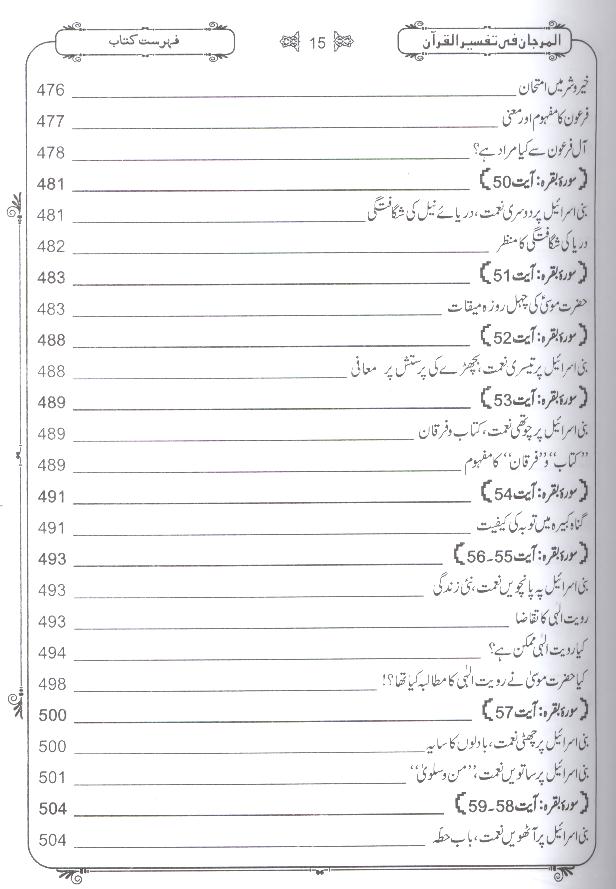 المرجان فی تفسیر القرآن 15 فہرست کتاب
خیر و شر میں امتحان 476
فرعون کا مفہوم اور معنی 477
آل فرعون سے کیا مراد ہے؟ 478
(سورۂ بقرہ: آیت 50) 481
بنی اسرائیل پر دوسری نعمت، دریائے نیل کی شگافتگی 481
دریا کی شگافتگی کا منظر 482
(سورۂ بقرہ: آیت 51) 483
حضرت موسیٰؑ کی چہل روزہ میقات 483
(سورۂ بقرہ: آیت 52) 488
بنی اسرائیل پر تیسری نعمت، بچھڑے کی پرستش پر معافی 488
(سورۂ بقرہ: آیت 53) 489
بنی اسرائیل پر چوتھی نعمت، کتاب و فرقان 489
”کتاب“ و ”فرقان“ کا مفہوم 489
(سورۂ بقرہ: آیت 54) 491
گناہ کبیرہ میں توبہ کی کیفیت 491
(سورۂ بقرہ: آیت 55۔56) 493
بنی اسرائیل پہ پانچویں نعمت، نئی زندگی 493
رویت الٰہی کا تقاضا 493
کیا رویت الٰہی ممکن ہے؟ 494
کیا حضرت موسیٰ نے رویت الٰہی کا مطالبہ کیا تھا؟! 498
(سورۂ بقرہ: آیت 57) 500
بنی اسرائیل پر چھٹی نعمت، بادلوں کا سایہ 500
بنی اسرائیل پر ساتویں نعمت، ”من و سلویٰ“ 501
(سورۂ بقرہ: آیت 58۔59) 504
بنی اسرائیل پر آٹھویں نعمت، باب حطہ 504